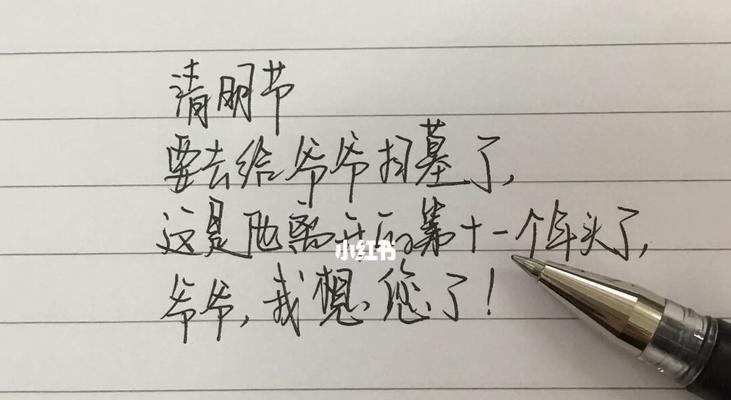 清明节
要去给爷爷扫墓了,
这是他离开后的第十一个年头了,
爷爷,我想您了!
小红书